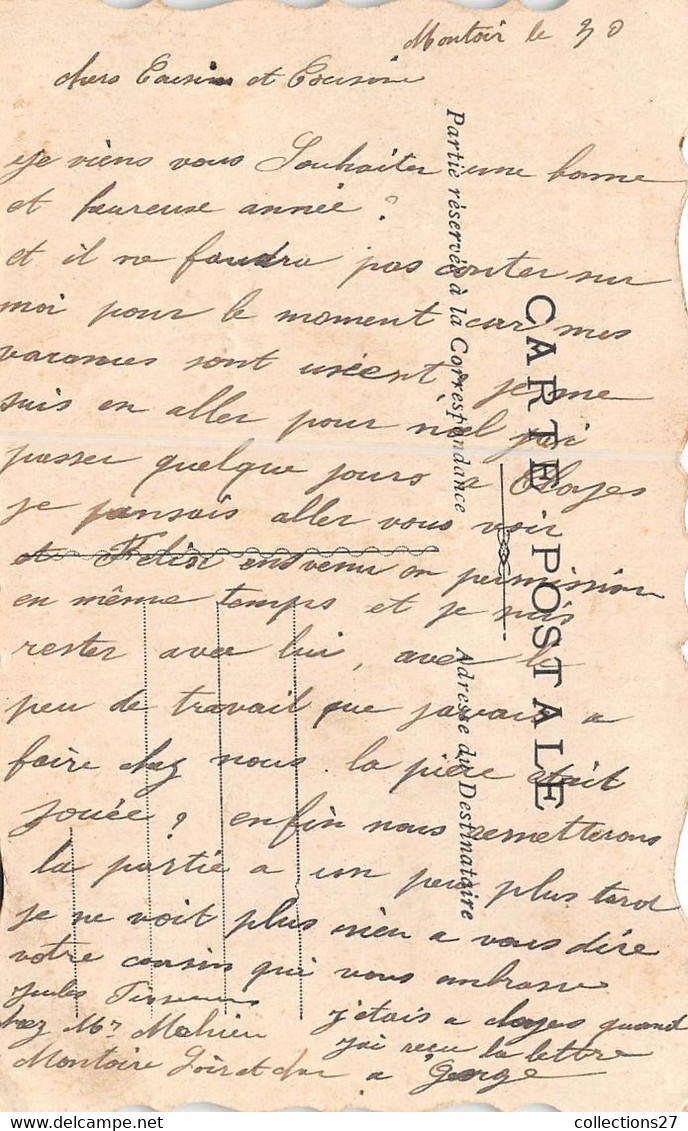 Montoir le 30
chers Cousin et Cousine
je viens vous Souhaiter une bonne
et heureuse année ?
et il ne faudra pas conter sur
moi pour le moment car mes
vacances sont uséent je me
suis en aller pour nöel j'ai
passer quelque jours a Cloyes
je pensais aller vous voir
et Felix en venu en permission
en même temps et je suis
rester avec lui, avec le
peu de travail que javais a
faire chez nous. la pièce était
jouée ? enfin nous remetterons
la partie a un peu plus tard
je ne voit plus rien a vous dire
votre cousin qui vous embrasse
Jules
chez Mr Mahieu
Montoire Loir et cher
j'etais a cloyes quand
j'ai reçu la lettre
a George
CARTE POSTALE
Partie réservée à la Correspondance
Adresse du Destinataire
collections27